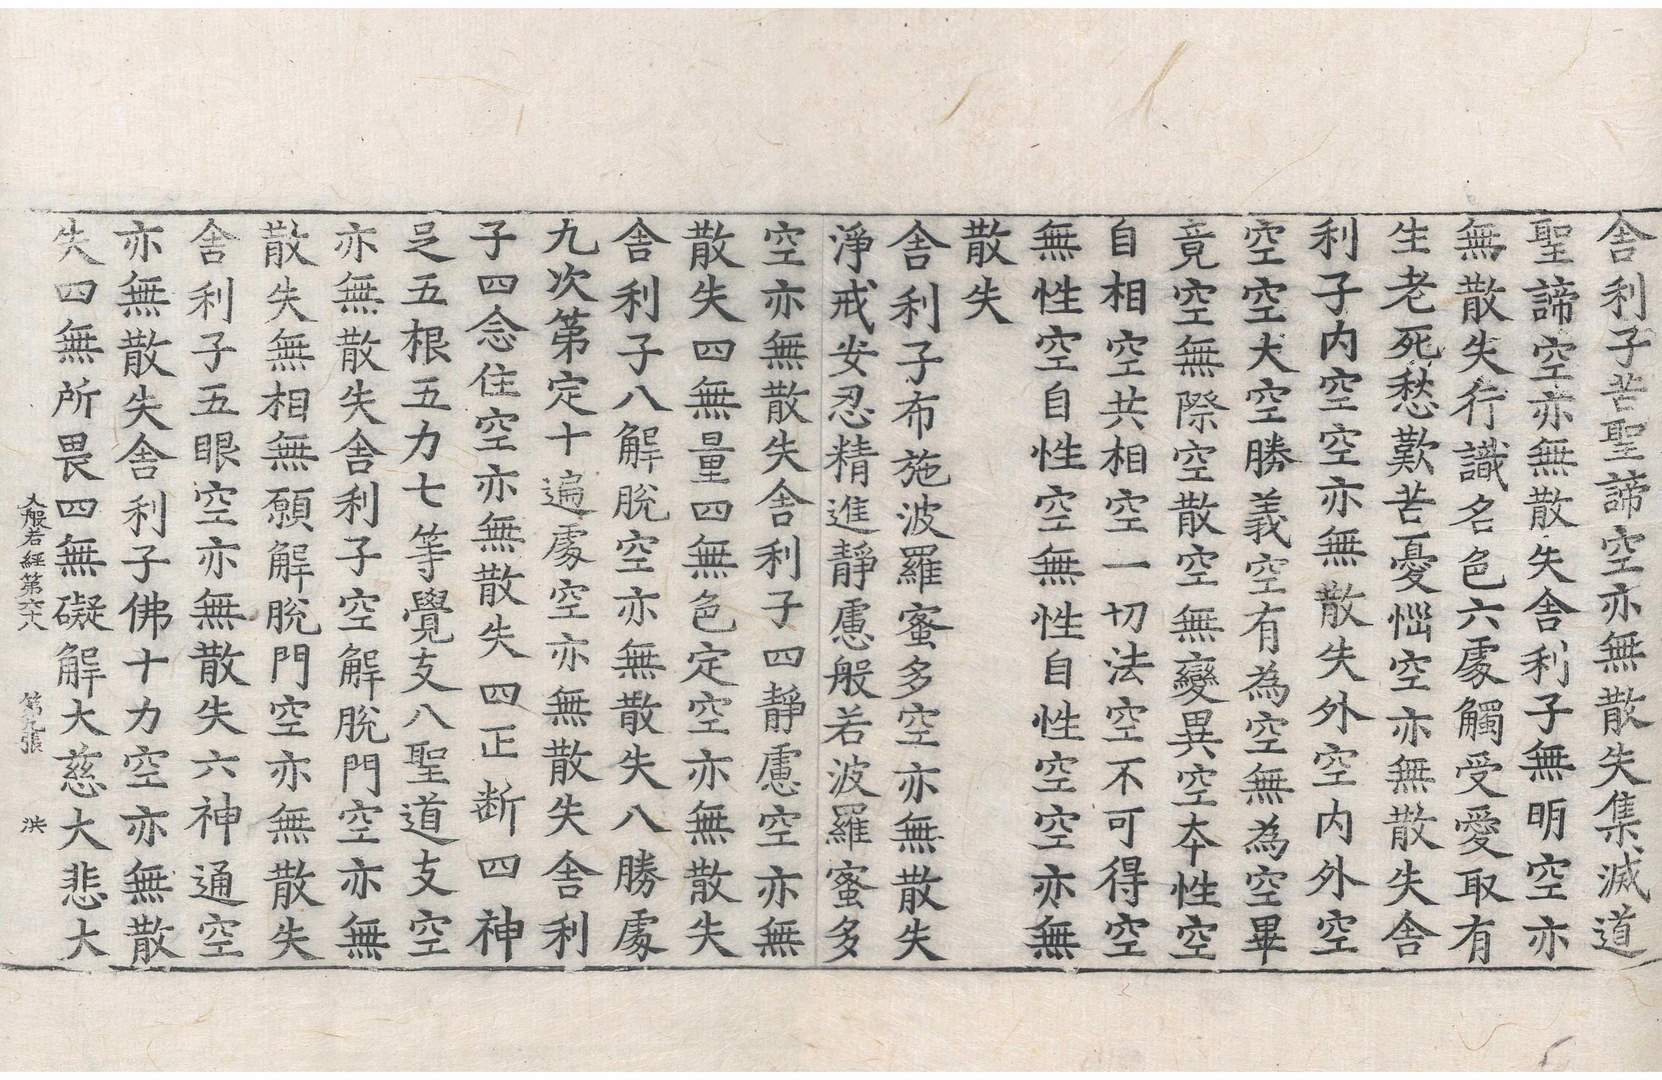 舍利子苦聖諦空亦無散失集滅道
聖諦空亦無散失舍利子無明空亦
無散失行識名色六處觸受愛取有
生老死愁歎苦憂惱空亦無散失舍
利子内空空亦無散失外空内外空
空空大空勝義空有為空無為空畢
竟空無際空散空無變異空本性空
自相空共相空一切法空不可得空
無性空自性空無性自性空空亦無
散失
舍利子布施波羅蜜多空亦無散失
淨戒安忍精進靜慮般若波羅蜜多
空亦無散失舍利子四靜慮空亦無
散失四無量四無色定空亦無散失
舍利子八解脫空亦無散失八勝處
九次第定十遍處空亦無散失舍利
子四念住空亦無散失四正断四神
足五根五力七等覺支八聖道支空
亦無散失舍利子空解脫門空亦無
散失無相無願解脫門空亦無散失
舍利子五眼空亦無散失六神通空
亦無散失舍利子佛十力空亦無散
失四無所畏四無礙解大慈大悲大
大般若經第六十八 第九張 洪